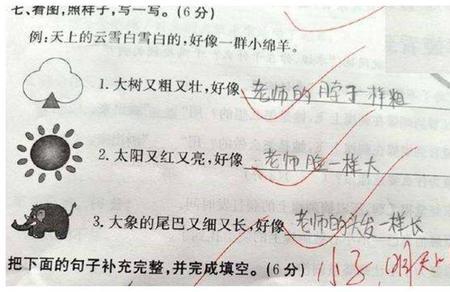 七、看图,照样子,写一写。(6分)
例:天上的云雪白雪白的,好像一群小绵羊。
1.大树又粗又壮,好像 老师的脖子一样粗
2.太阳又红又亮,好像 老师脸一样大
3.大象的尾巴又细又长,好像 老师的头发一样长
把下面的句子补充完整,并完成填空。(6分) 小子,